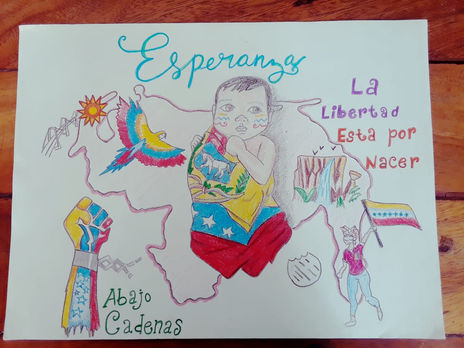 Esperanza
La
Libertad
Esta por
Nacer
Abajo
Cadenas